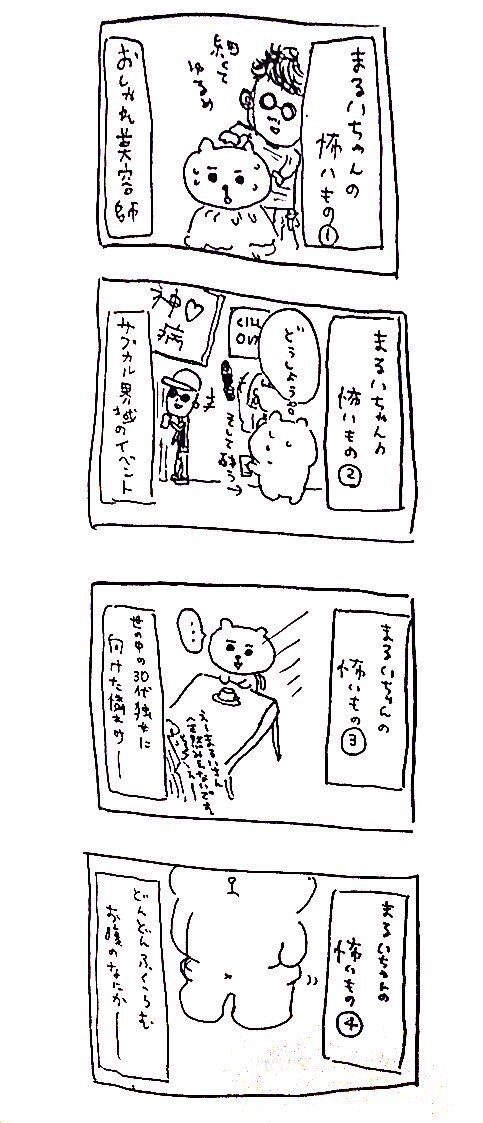 まるいちゃんの
怖いもの①
細くて
ゆるめ
おしゃれ美容師
まるいちゃんの
怖いもの②
どうしよう…
そして酔う→
神♡
病
サブカル界域のイベント
まるいちゃんの
怖いもの③
…
えーまるいさん
世の中の30代独女に
向けた偏友め―
まるいちゃんの
怖いもの④
どんどんふくらむ
お腹のなにか―